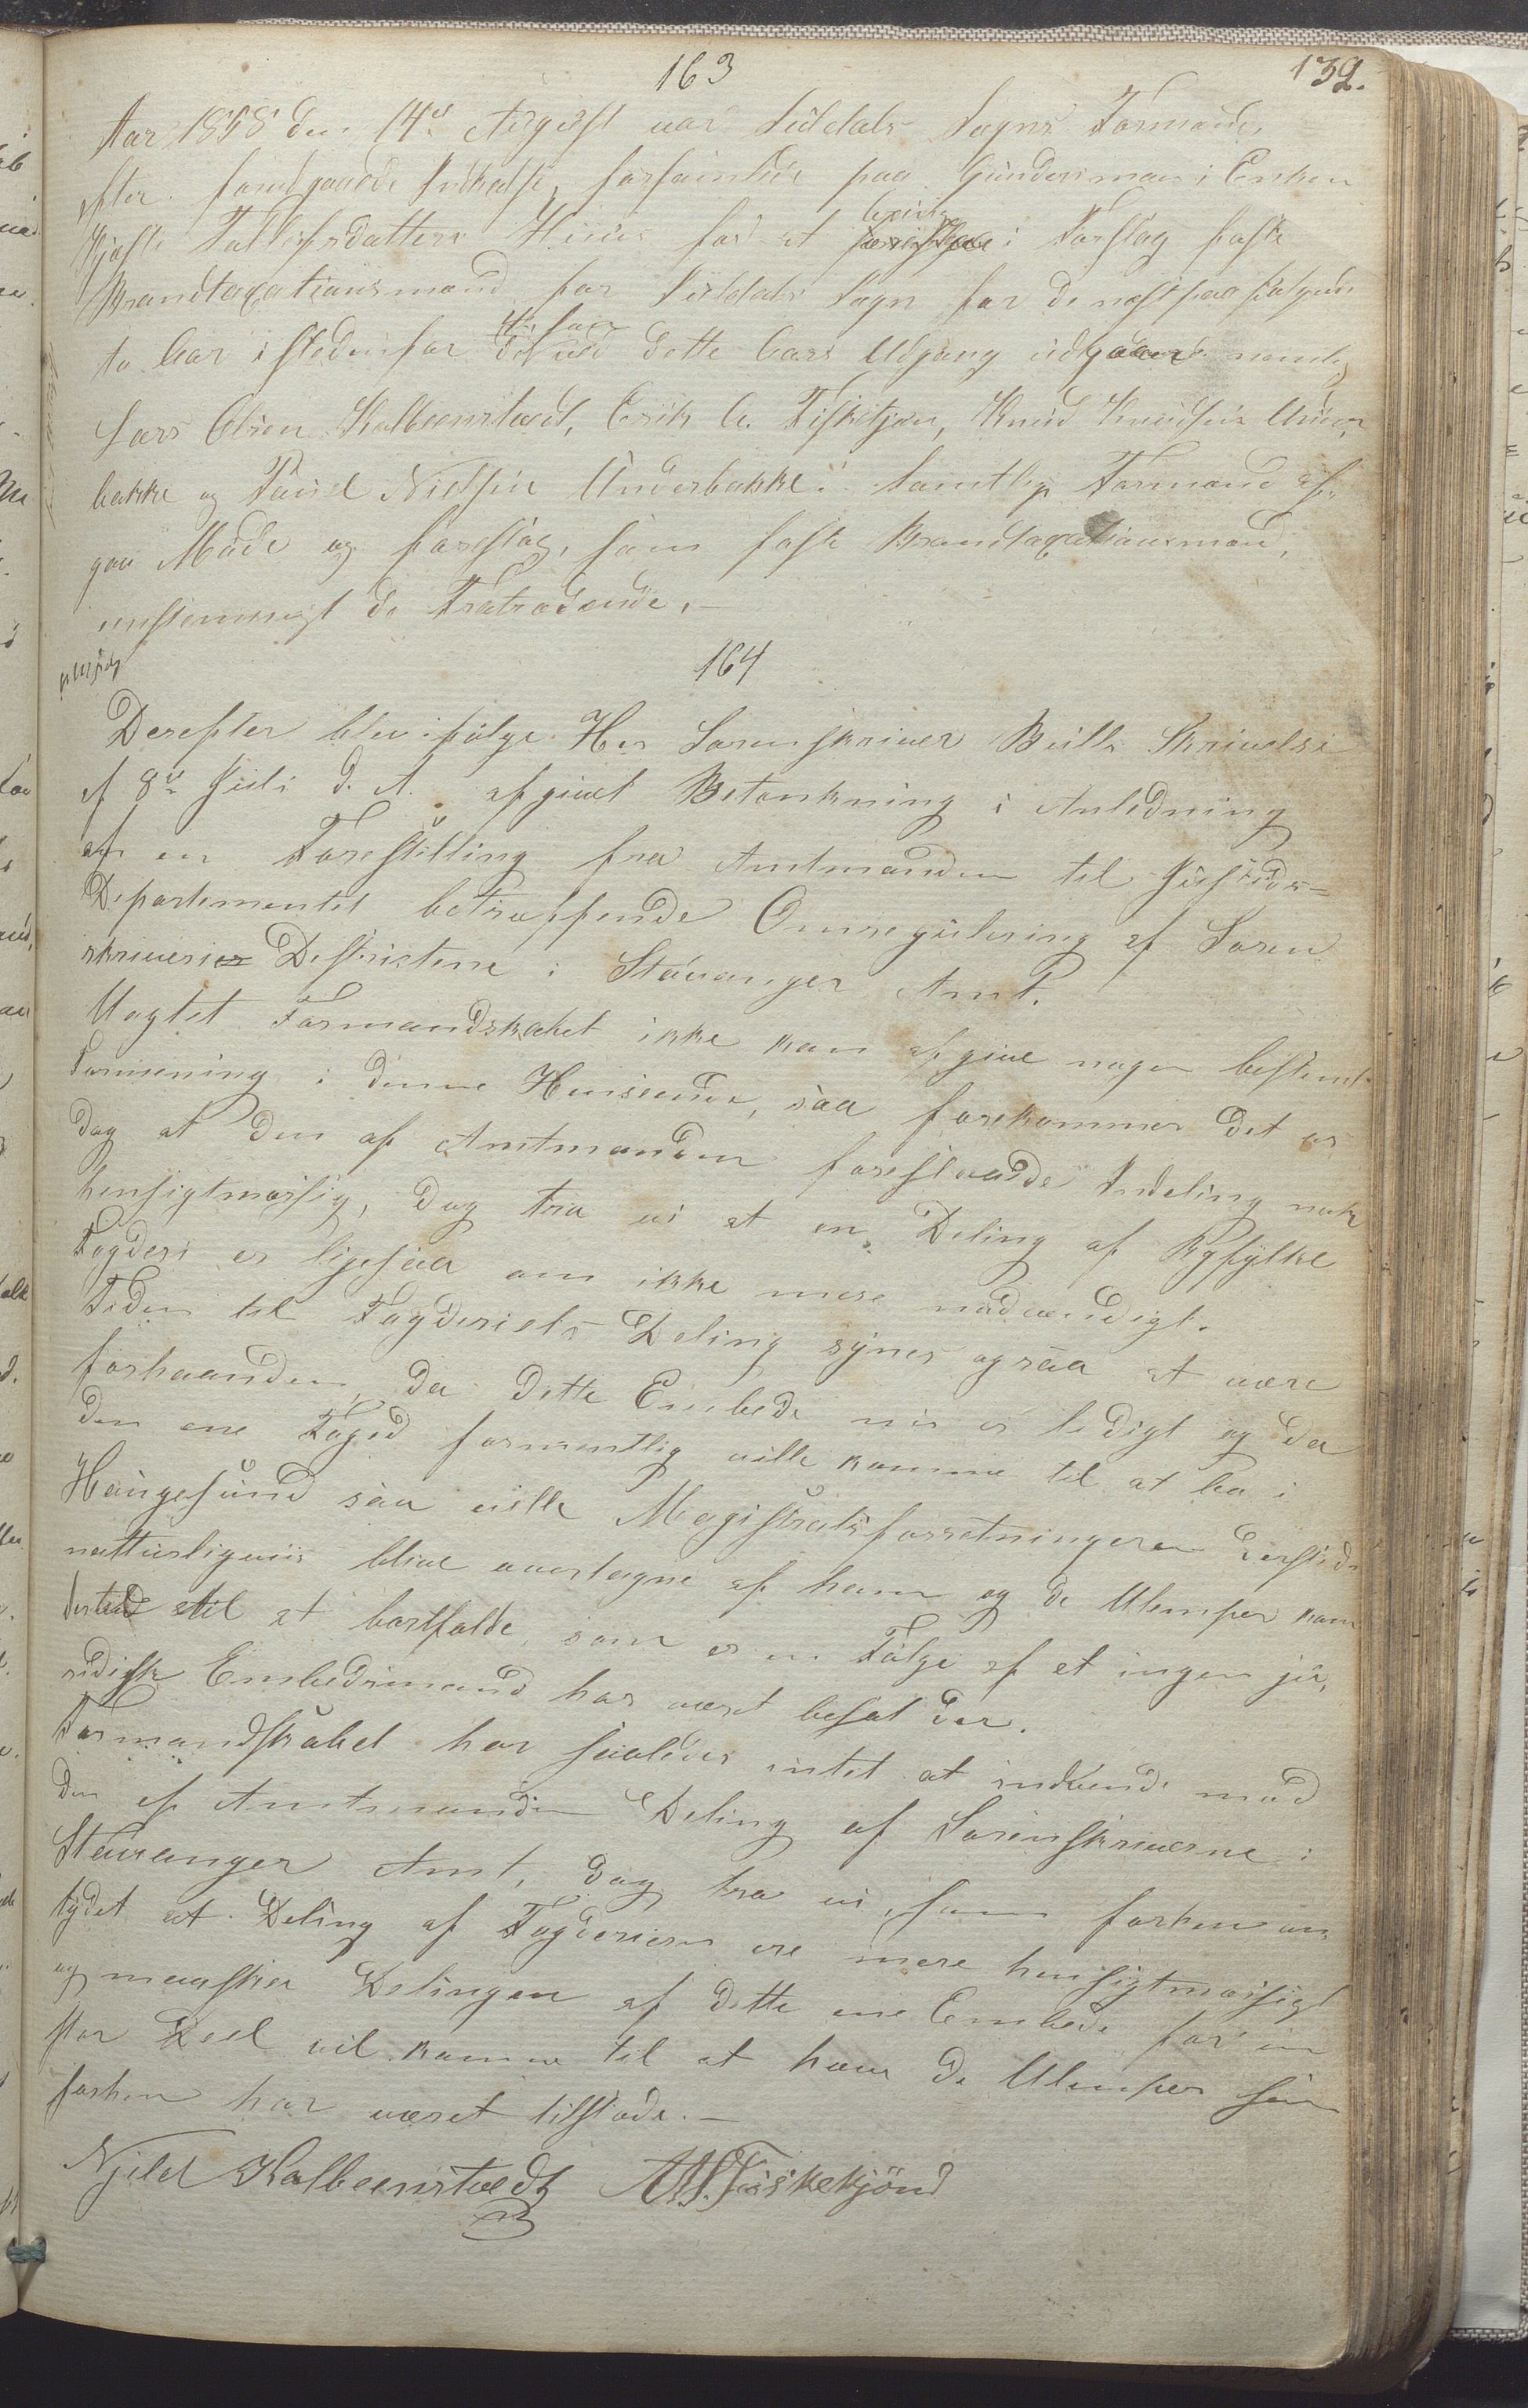 163
139.
Aar 1858 den 14de August var Suldals Sogns Formænd,
efter foregaaende Indkaldelse, forsamlede paa Gundersmoen i Enken
Tallefsdatters Huus for at bringe i Forslag faste
Brandtaxationsmænd for Suldals Sogn for de næstpaafølgende
to Aar istedenfor de som ved dette Aars Udgang udgaaer nemlig
Lars Olsen Kalbeenstvedt, Erik A. Fisketjøn, Knud Knudsen Under
bakke og Paul Nielsen Underbakke. Samtlige Formænd af
gav Møde og foreslog, som faste Brandtaxationsmænd,
eenstemmigt de Fratrædende.
164
Derefter blev ifølge Her Sorenskriver Bulls Skrivelse
af 8de Juli d. A. afgivet Betænkning i Anledning
af en Forestilling fra Amtmanden til Justids-
Departementet betræffende Omregulering af Soren
skriveri Destrictene i Stavanger Amt.
Uagtet Formandskabet ikke kan afgive nogen bestemt
Formening i denne Henseende, saa forekommer det os
dog at den af Amtmanden foreslaaede Inddeling nok
hensigtmæssig, dog tror vi at en Deling af Ryfylke
Fogderi er ligesaa om ikke mere nødvendigt.
Tiden til Fogderiets Deling synes ogsaa at være
forhaanden, da dette Embede nu er ledigt og da
den ene Foged formentlig ville komme til at bo i
Haugesund saa ville Magistratsforretningerne dersteds
naturligviis blive overtagne af ham og de Ulemper kom
til at bortfalde, som er en Følge af at ingen ju,
ridisk Embedsmand har været besat der.
Formandskabet har saaledes intet at indvende mod
den af Amtmanden Deling af Sorenskriverne i
Stavanger Amt, dog tror vi, som forhen an,
tydet at Deling af Fogderiern ere mere hensigtmæssigt
og maaskee Delingen af dette ene Embede for en
stor Deel vil komme til at hæve de Ulemper som
forhen har været tilstæde.-
Njeld Kalbeenstvedt A. A. Fiskekjönd